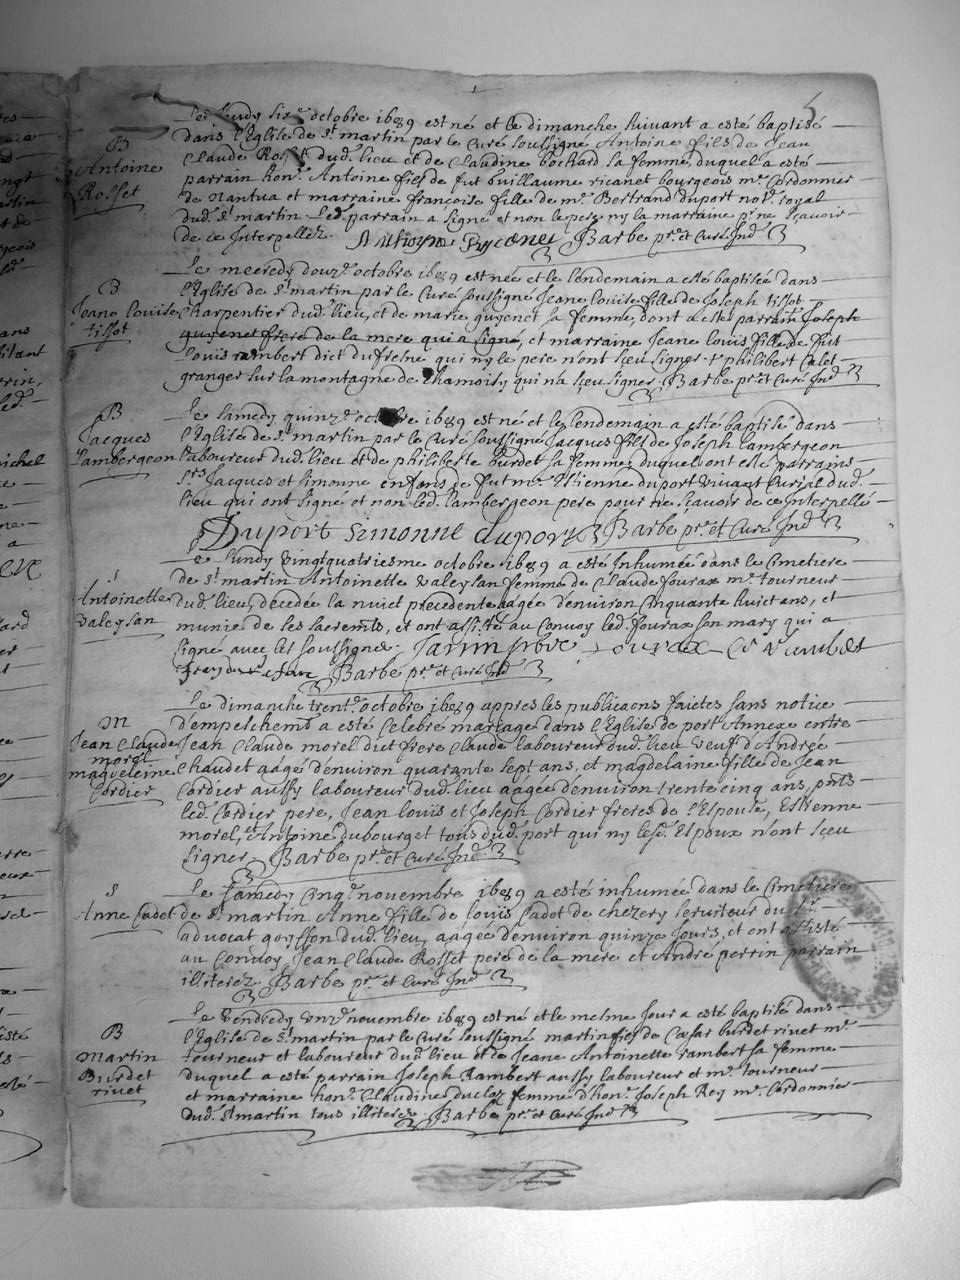 5
Le Jeudy six.e octobre 1689 est né et le dimanche suivant a esté baptisé
dans l'Eglise de St martin par le Curé soussigné Antoine fils de Jean
B
Antoine
Rosset
Claude Rosset dud. lieu et de Claudine bochard sa femme, duquel a esté
parrain hon. Antoine fils de fut Guillaume ricanet bourgeois m.e Cordonnier
de Nantua et marraine françoise fille de m.e Bertrand duport no.re royal
dud. St martin Led. parrain a signé et non le pere ny la marraine p.r ne sçavoir
de ce Interpellez. Anthoyne Rycanet Barbe p.re et Curé Ind.
Le mecredy douz.e octobre 1689 est née et le lendemain a esté baptisée dans
B
Jeane Louise
tissot
l'Eglise de St martin par le Curé soussigné Jeane louise fille de Joseph tissot
Charpentier dud. lieu, et de marie guyenet sa femme, dont a esté parrain Joseph
guyenet frere de la mere qui a signé, et marraine Jeane louis fille de fut
louis rambert dict dufresne qui ny le pere n'ont sçeu signer + philibert Calet
granger sur la montagne de Chamoisy qui n'a sçeu signer, Barbe p.re et Curé Ind.
B
Jacques
Lambergeon
Le samedy quinz.e octobre 1689 est né et le lendemain a esté baptisé dans
l'Eglise de St martin par le Curé soussigné Jacques fils de Joseph Lambergeon
laboureur dud. lieu et de philiberte burdet sa femme, duquel ont esté parrains
Srs Jacques et Simonne enfans de fut m.e Etienne duport vivant Curial dud.
lieu qui ont signé et non led. Lambergeon pere pour ne sçavoir de ce Interpellé
Duport Simonne duport Barbe p.re et Curé Ind.
Le lundy vingtquatriesme octobre 1689 a esté Inhumée dans le Cimetiere
S
Antoinette
Valeysan
de St martin Antoinette valeysan femme de Claude fourax m.e tourneur
dud. lieu, decedée la nuict precedente aagée d'environ Cinquante huict ans, et
munie de ses sacrem.ts, et ont assisté au Convoy led. fourax son mary qui a
signé avec les soussignés.
Barbe p.re et Curé Ind.
Le dimanche trent.e octobre 1689 appres les publicaons faictes sans notice
M
Jean Claude
morel
magdeleine
Cordier
d'empeschem.t a esté Celebré mariage dans l'Eglise de port Annexe entre
Jean Claude morel dict frere Claude laboureur dud. lieu veuf d'Andrée
Chaudet aagé d'environ quarante sept ans, et magdelaine fille de Jean
Cordier aussy laboureur dud. lieu aagée d'environ trente cinq ans, pnts
led. Cordier pere, Jean Louis et Joseph Cordier freres de l'Espouse, Estienne
morel, et Antoine dubourget tous dud. port qui ny lesd. Espoux n'ont sçeu
signer Barbe p.re et Curé Ind.
S
Anne Cadet
Le samedy Cinq.e novembre 1689 a esté inhumée dans le Cimetiere
de St martin Anne fille de louis Cadot de chezery serviteur du Sr
advocat goyffon dud. lieu, aagée d'environ quinze jours, et ont assisté
au Convoy Jean Claude Rosset pere de la mere et André perrin parrain
illiterez Barbe p.re et Curé Ind.
Le vendredy unz.e novembre 1689 est né et le mesme jour a esté baptisé dans
B
Martin
Burdet
rivet
l'Eglise de St martin par le Curé soussigné martin fils de Cæsar burdet rivet m.e
tourneur et laboureur dud. lieu et de Jeane Antoinette rambert sa femme
duquel a esté parrain Joseph Rambert aussy laboureur et m.e tourneur
et marraine hon. Claudine ducloz femme d'hon. Joseph Rey m.e Cordonnier
dud. St martin tous illiterez. Barbe p.re et Curé Ind.